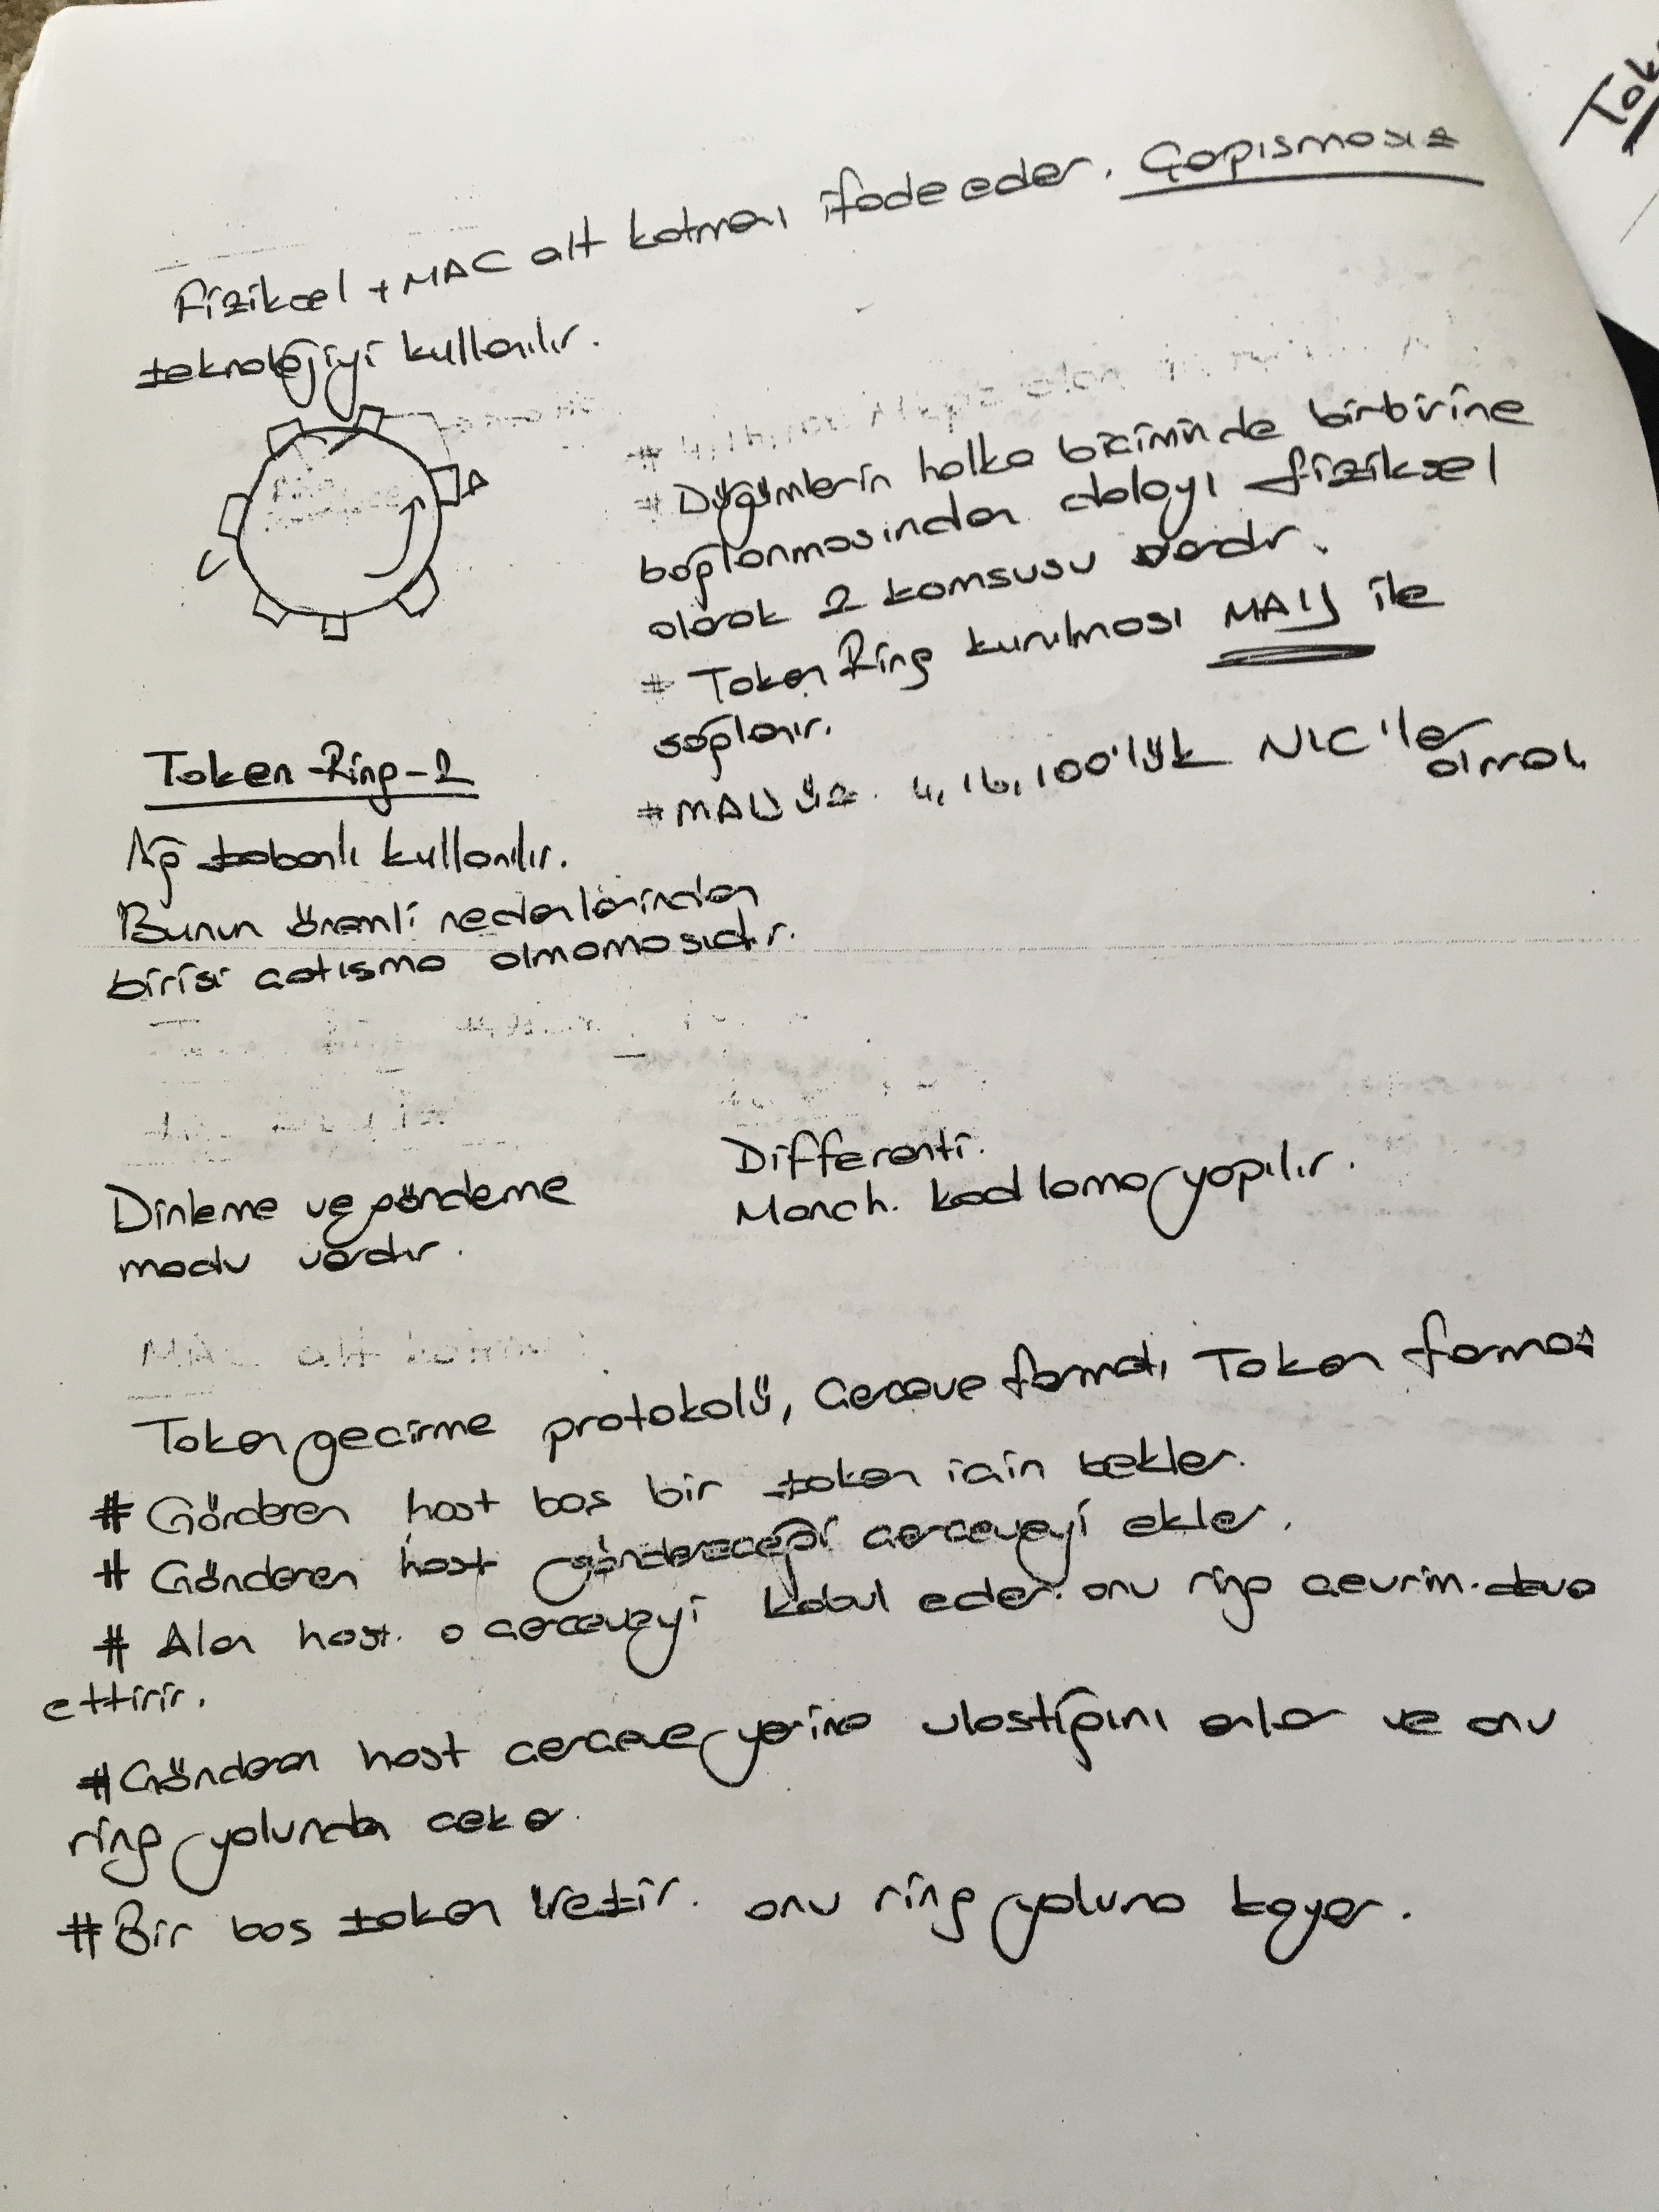 Tok
Fiziksel + MAC alt katmanı ifade eder. Çapışmasız
teknolojiyi kullanılır.
# Düğümlerin halka biciminde birbirine
bağlanmasından dolayı fiziksel
olarak 2 komsusu vardır.
# Token Ring kurulması MAU ile
sağlanır.
# MAU üz. 4, 16, 100'lük NIC'ler
olmalı
Token-Ring-2
Ağ tabanlı kullanılır.
Bunun önemli nedenlerinden
birisi catısma olmamasıdır.
Dinleme ve göndeme
modu vardır.
Differenti.
Manch. kodlama yapılır.
MAC alt katman
Token gecirme protokolü, Cerceve formatı, Token format
# Gönderen host bos bir token icin bekler.
# Gönderen host göndereceği cerceveyi ekler.
# Alan host. o cerceveyi kabul eder. onu ring cevrim. deva
ettirir.
# Gönderen host cerceve yerine ulastığını anlar ve onu
ring yolundan ceker.
# Bir bos token üretir. onu ring yoluna koyar.